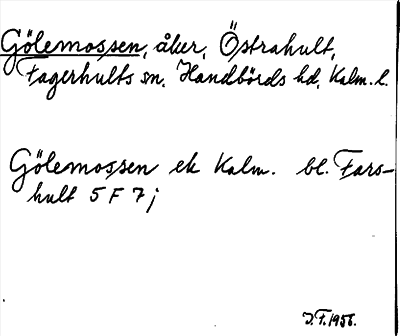 Gölemossen, åker, Östrahult,
Fagerhults sn, Handbörds hd, Kalm. l.
Gölemossen ek Kalm. bl. Fars-
hult 5 F 7 j
J.F. 1956.